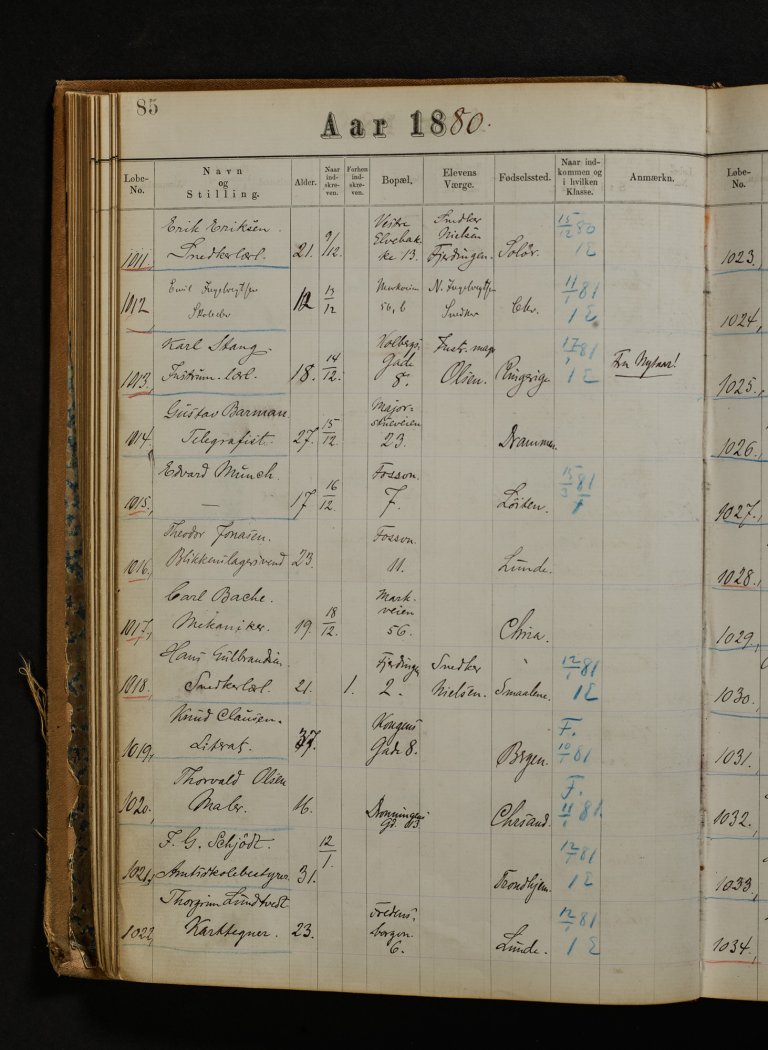 85
Aar 1880.
Løbe-No.
Navn og Stilling.
Alder.
Naar ind-skre-ven.
Forhen ind-skre-ven.
Bopæl,
Elevens Værge.
Fødselssted.
Naar ind-kommen og i hvilken Klasse.
Anmærkn.
Løbe-No.
Erik Eriksen. Vestre Snedker 15/12 80
1011, Snedkerlærl. 21. 9/12. Elvebak-ke 13. Nielsen Fjerdingen. Solør. 1 E 1023,
Emil Ingebregtsen Markveien N. Ingebregtsen 11/1 81
1012 12 13/12 56, b Snedker Chr. 1 E 1024,
Karl Stang. Holbergs Instr. mag. 17/1 81
1013, Instrum. lærl. 18. 14/12. Gade 8. Olsen. Ringerige 1 E 1025,
Gustav Barman. Major-
1014, Telegrafist. 27. 15/12 stueveien 23. Drammen. 1026,
Edvard Munch. Fossvn. 15/3 81
1015, — 17 16/12. 7. Löiten. 1027,
Theodor Jonasen. Fossvn.
1016, Blikkenslagersvend 23. 11. Lunde. 1028,
Carl Bache. Mark-veien
1017, Mekaniker. 19. 18/12. 56. Chria. 1029,
Hans Gulbrandsen. Fjerdingen Snedker 12/1 81
1018. Snedkerlærl. 21. 1. 2. Nielsen. Smaalene. 1 E 1030,
Knud Clausen. Kongens F.
1019, Literat. 37. Gade 8. Bergen. 10/1 81 1031,
Thorvald Olsen F.
1020. Maler. 16. Dronningens Gd. 13. Chrsand. 11/1 81 1032,
F. G. Schjödt. 12/1. 12/1 81
1021, Amtsskolebestyrer 31. Trondhjem. 1 E 1033,
Thorgrim Lundtvedt Fredens- 12/1 81
1022, Karttegner. 23. borgvn. 6. Lunde. 1 E 1034,